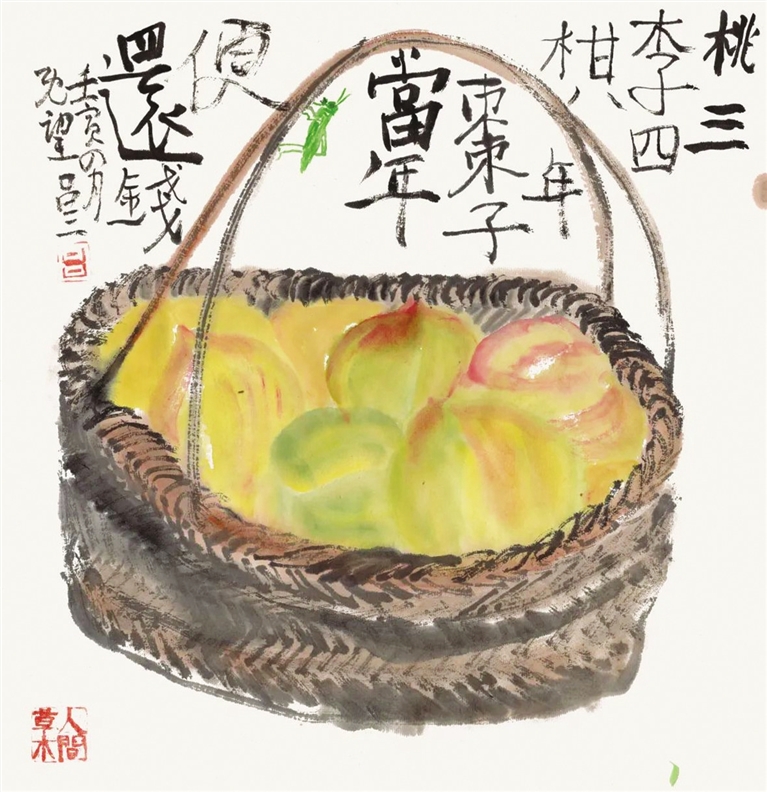 桃三
李四
柑八
年
棗子
當年
便
還錢
壬寅四月
既望吕三
吕
人間
草木